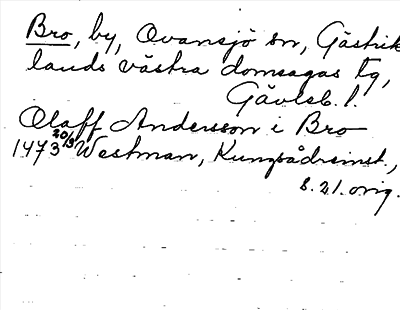 Bro, by, Ovansjö sn, Gästrik
lands västra domsagas tg,
Gävleb. l.
Olaff Andersson i Bro
1473 20/3 Westman, Kungsådreinst.,
s. 21. orig.